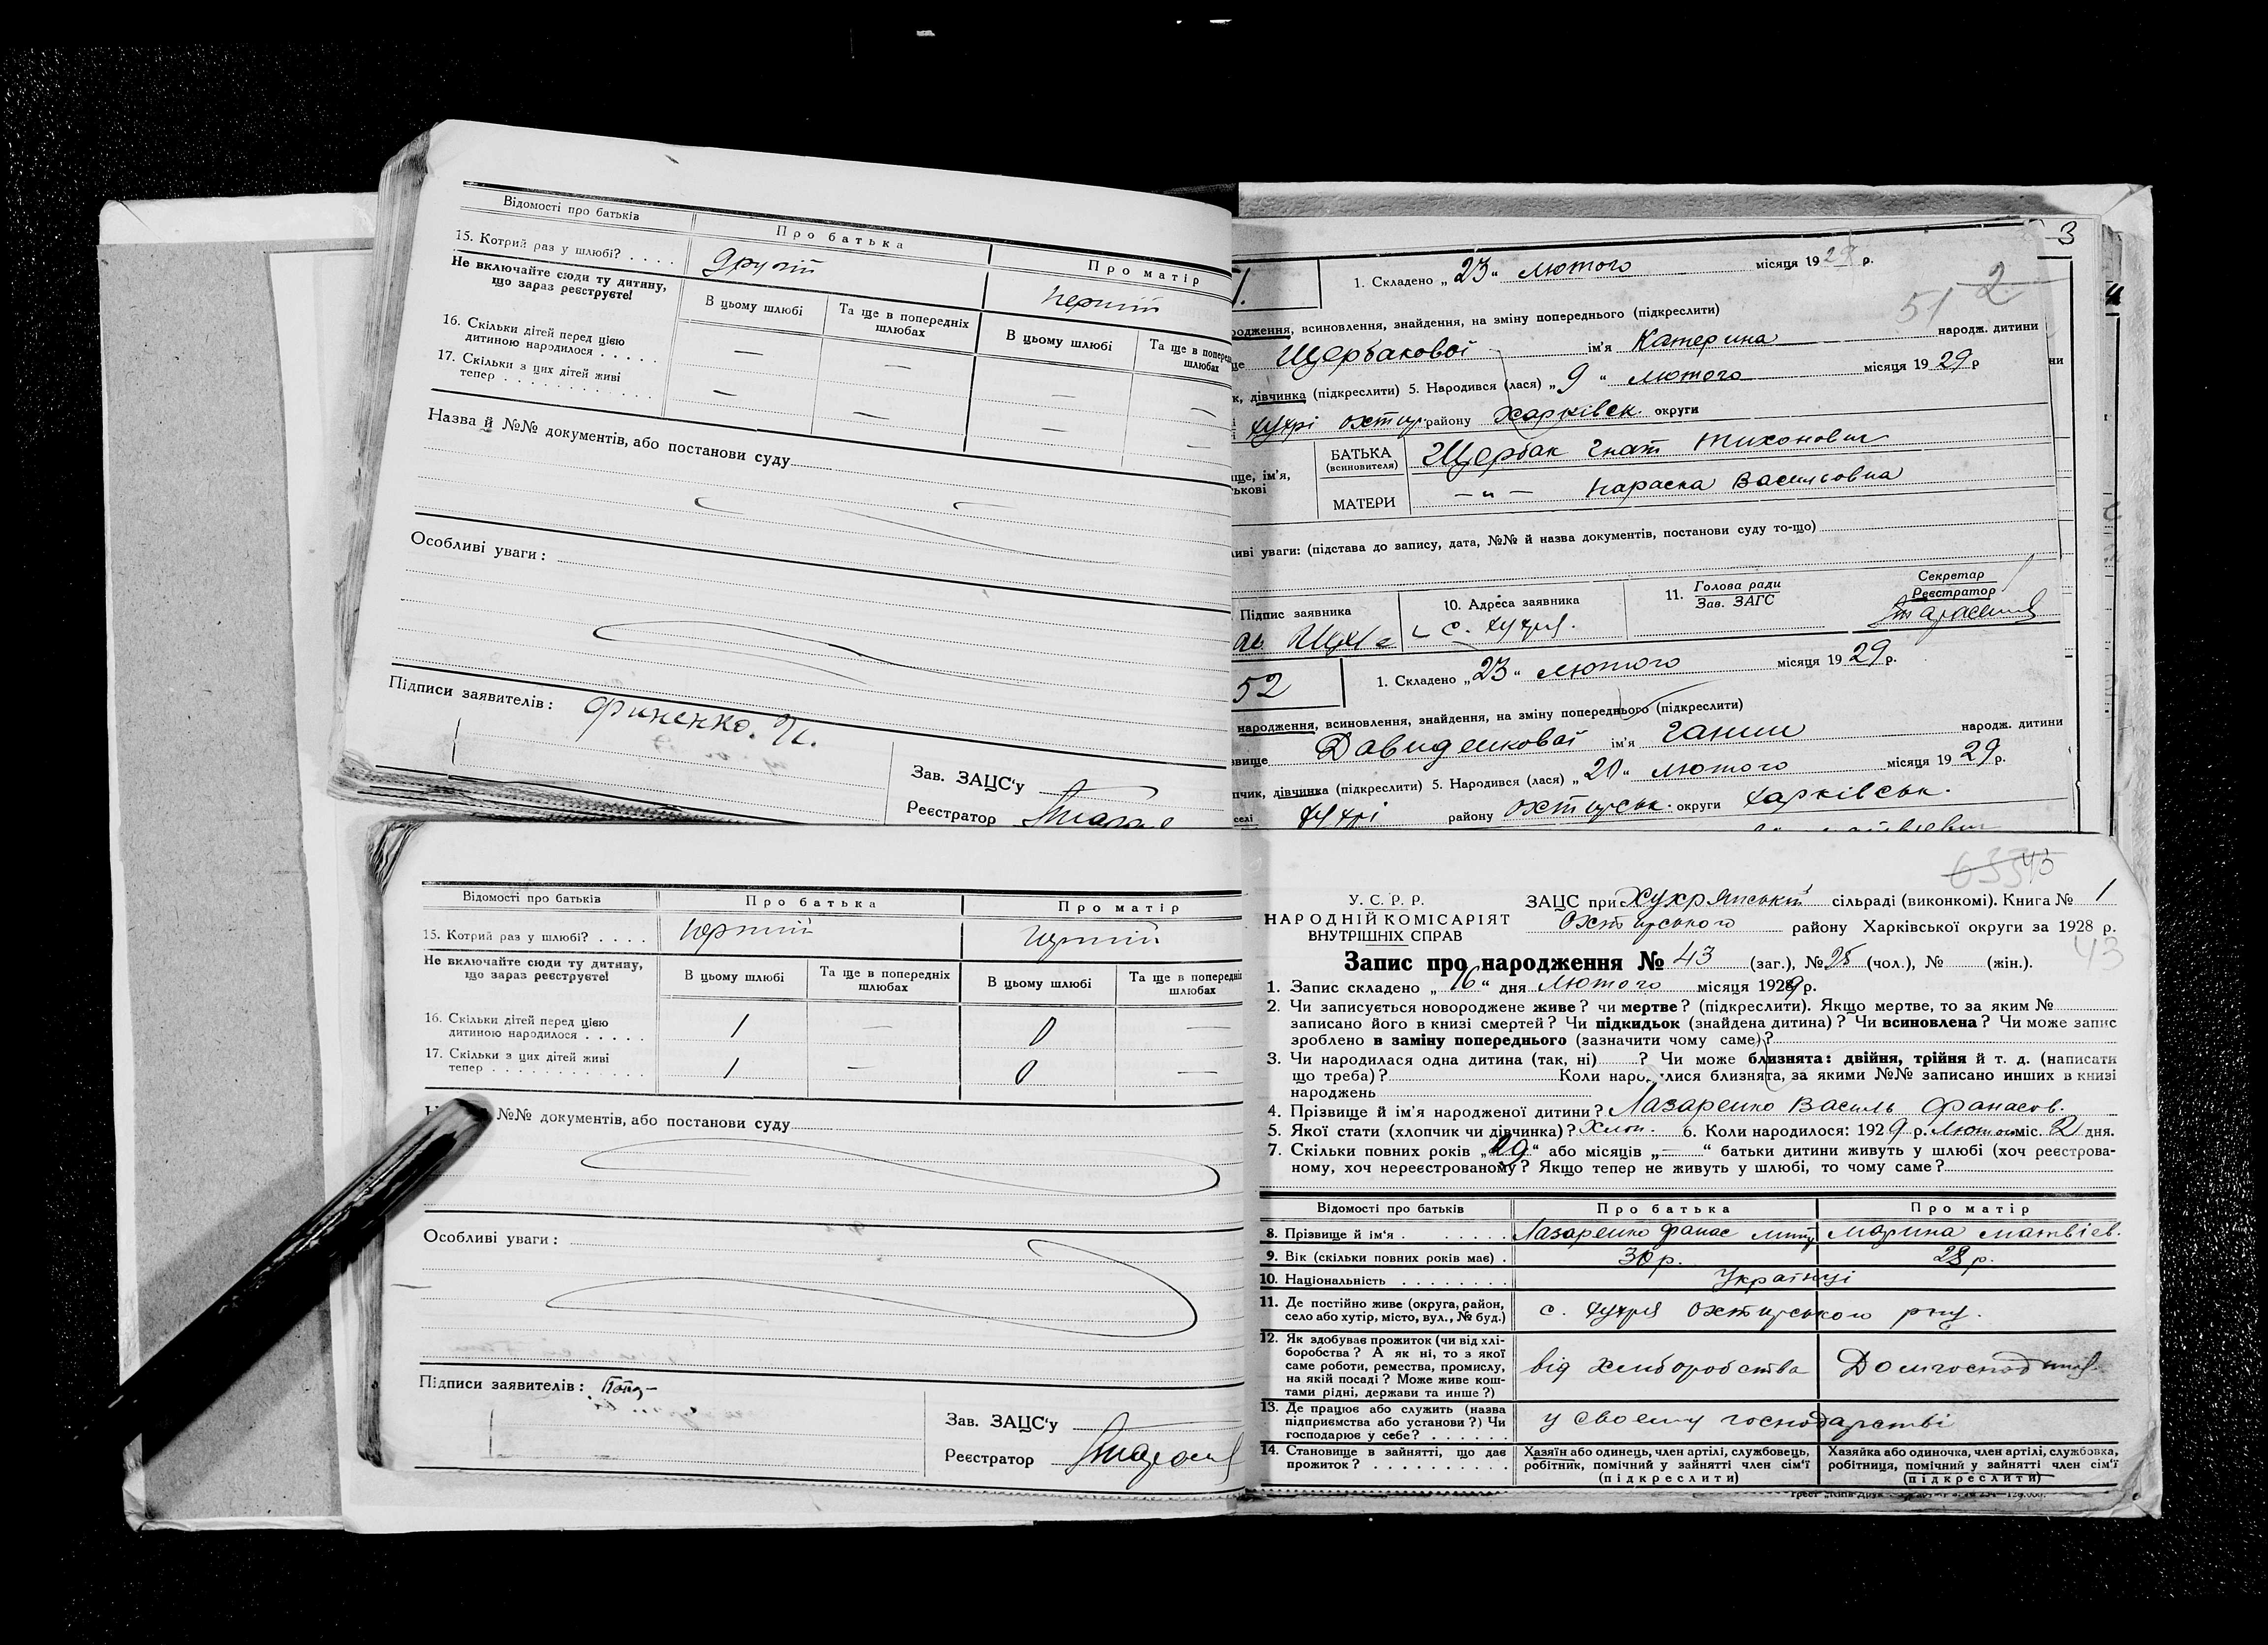 Відомості про батьків
Про батька
Про матір
15. Котрий раз у шлюбі? . . . .
другий
перший
Не включайте сюди ту дитину,
що зараз реєструєте!
В цьому шлюбі
Та ще в попередніх
шлюбах
В цьому шлюбі
Та ще в поперед
шлюбах
16. Скільки дітей перед цією
дитиною народилося . . . . .
— — — —
17. Скільки з цих дітей живі
тепер . . . . . . . . .
— — — —
Назва й №№ документів, або постанови суду
Особливі уваги:
Підписи заявителів: Финенко. И.
Зав. ЗАЦС'у
Реєстратор
3
1. Складено „23" лютого місяця 1929 р.
51 2
народження, всиновлення, знайдення, на зміну попереднього (підкреслити)
Щербакової ім'я Катерина народж. дитини
дівчинка (підкреслити) 5. Народився (лася) „9" лютого місяця 1929 р
Хухрі Охтир. району Харківськ. округи
ще, ім'я,
ькові
БАТЬКА
(всиновителя)
Щербак Гнат Тихонович
МАТЕРИ
—„— Параска Васильовна
иві уваги: (підстава до запису, дата, №№ й назва документів, постанови суду то-що)
Підпис заявника
10. Адреса заявника
с. Хухря.
11. Голова ради
Зав. ЗАГС
Секретар
Реєстратор
52
1. Складено „23" лютого місяця 1929 р.
народження, всиновлення, знайдення, на зміну попереднього (підкреслити)
звище Давиденкової ім'я Ганни народж. дитини
пчик, дівчинка (підкреслити) 5. Народився (лася) „20" лютого місяця 1929 р.
селі Хухрі району Охтирськ. округи Харківськ.
Відомості про батьків
Про батька
Про матір
15. Котрий раз у шлюбі? . . . .
перший
перший
Не включайте сюди ту дитину,
що зараз реєструєте!
В цьому шлюбі
Та ще в попередніх
шлюбах
В цьому шлюбі
Та ще в попередні
шлюбах
16. Скільки дітей перед цією
дитиною народилося . . . . .
1 — 0 —
17. Скільки з цих дітей живі
тепер . . . . . . . . . . . .
1 — 0 —
№№ документів, або постанови суду
Особливі уваги:
Підписи заявителів:
Зав. ЗАЦС'у
Реєстратор
У. С. Р. Р.
НАРОДНІЙ КОМІСАРІЯТ
ВНУТРІШНІХ СПРАВ
ЗАЦС при Хухрянській сільраді (виконкомі). Книга № 1
Охтирського району Харківської округи за 1928 р.
43
Запис про народження № 43 (заг.), № 25 (чол.), № (жін.).
1. Запис складено „16" дня лютого місяця 1929 р.
2. Чи записується новороджене живе? чи мертве? (підкреслити). Якщо мертве, то за яким №
записано його в книзі смертей? Чи підкидьок (знайдена дитина)? Чи всиновлена? Чи може запис
зроблено в заміну попереднього (зазначити чому саме)?
3. Чи народилася одна дитина (так, ні) ? Чи може близнята: двійня, трійня й т. д. (написати
що треба)? Коли народилися близнята, за якими №№ записано инших в книзі
народжень
4. Прізвище й ім'я народженої дитини? Лазаренко Василь Фанасов.
5. Якої стати (хлопчик чи дівчинка)? Хлоп. 6. Коли народилося: 1929 р. Лютого міс. 2 дня.
7. Скільки повних років „ " або місяців „—" батьки дитини живуть у шлюбі (хоч реєстрова-
ному, хоч нереєстрованому? Якщо тепер не живуть у шлюбі, то чому саме?
Відомості про батьків
Про батька
Про матір
8. Прізвище й ім'я . . . . . . .
Лазаренко Фанас Мит
Марина Матвієв.
9. Вік (скільки повних років має) .
30 р.
28 р.
10. Національність . . . . . . . .
Українці
11. Де постійно живе (округа, район,
село або хутір, місто, вул., № буд.)
с. Хухря Охтирського р-ну.
12. Як здобуває прожиток (чи від хлі-
боробства? А як ні, то з якої
саме роботи, ремества, промислу,
на якій посаді? Може живе кош-
тами рідні, держави та инше?)
від хліборобства
13. Де працює або служить (назва
підприємства або установи?) Чи
господарює у себе? . . . . . .
у своєму господарстві
14. Становище в зайнятті, що дає
прожиток? . . . . . . . . . .
Хазяїн або одинець, член артілі, службовець,
робітник, помічний у зайнятті член сім'ї
(підкреслити)
Хазяйка або одиночка, член артілі, службовка,
робітниця, помічний у зайнятті член сім'ї
(підкреслити)